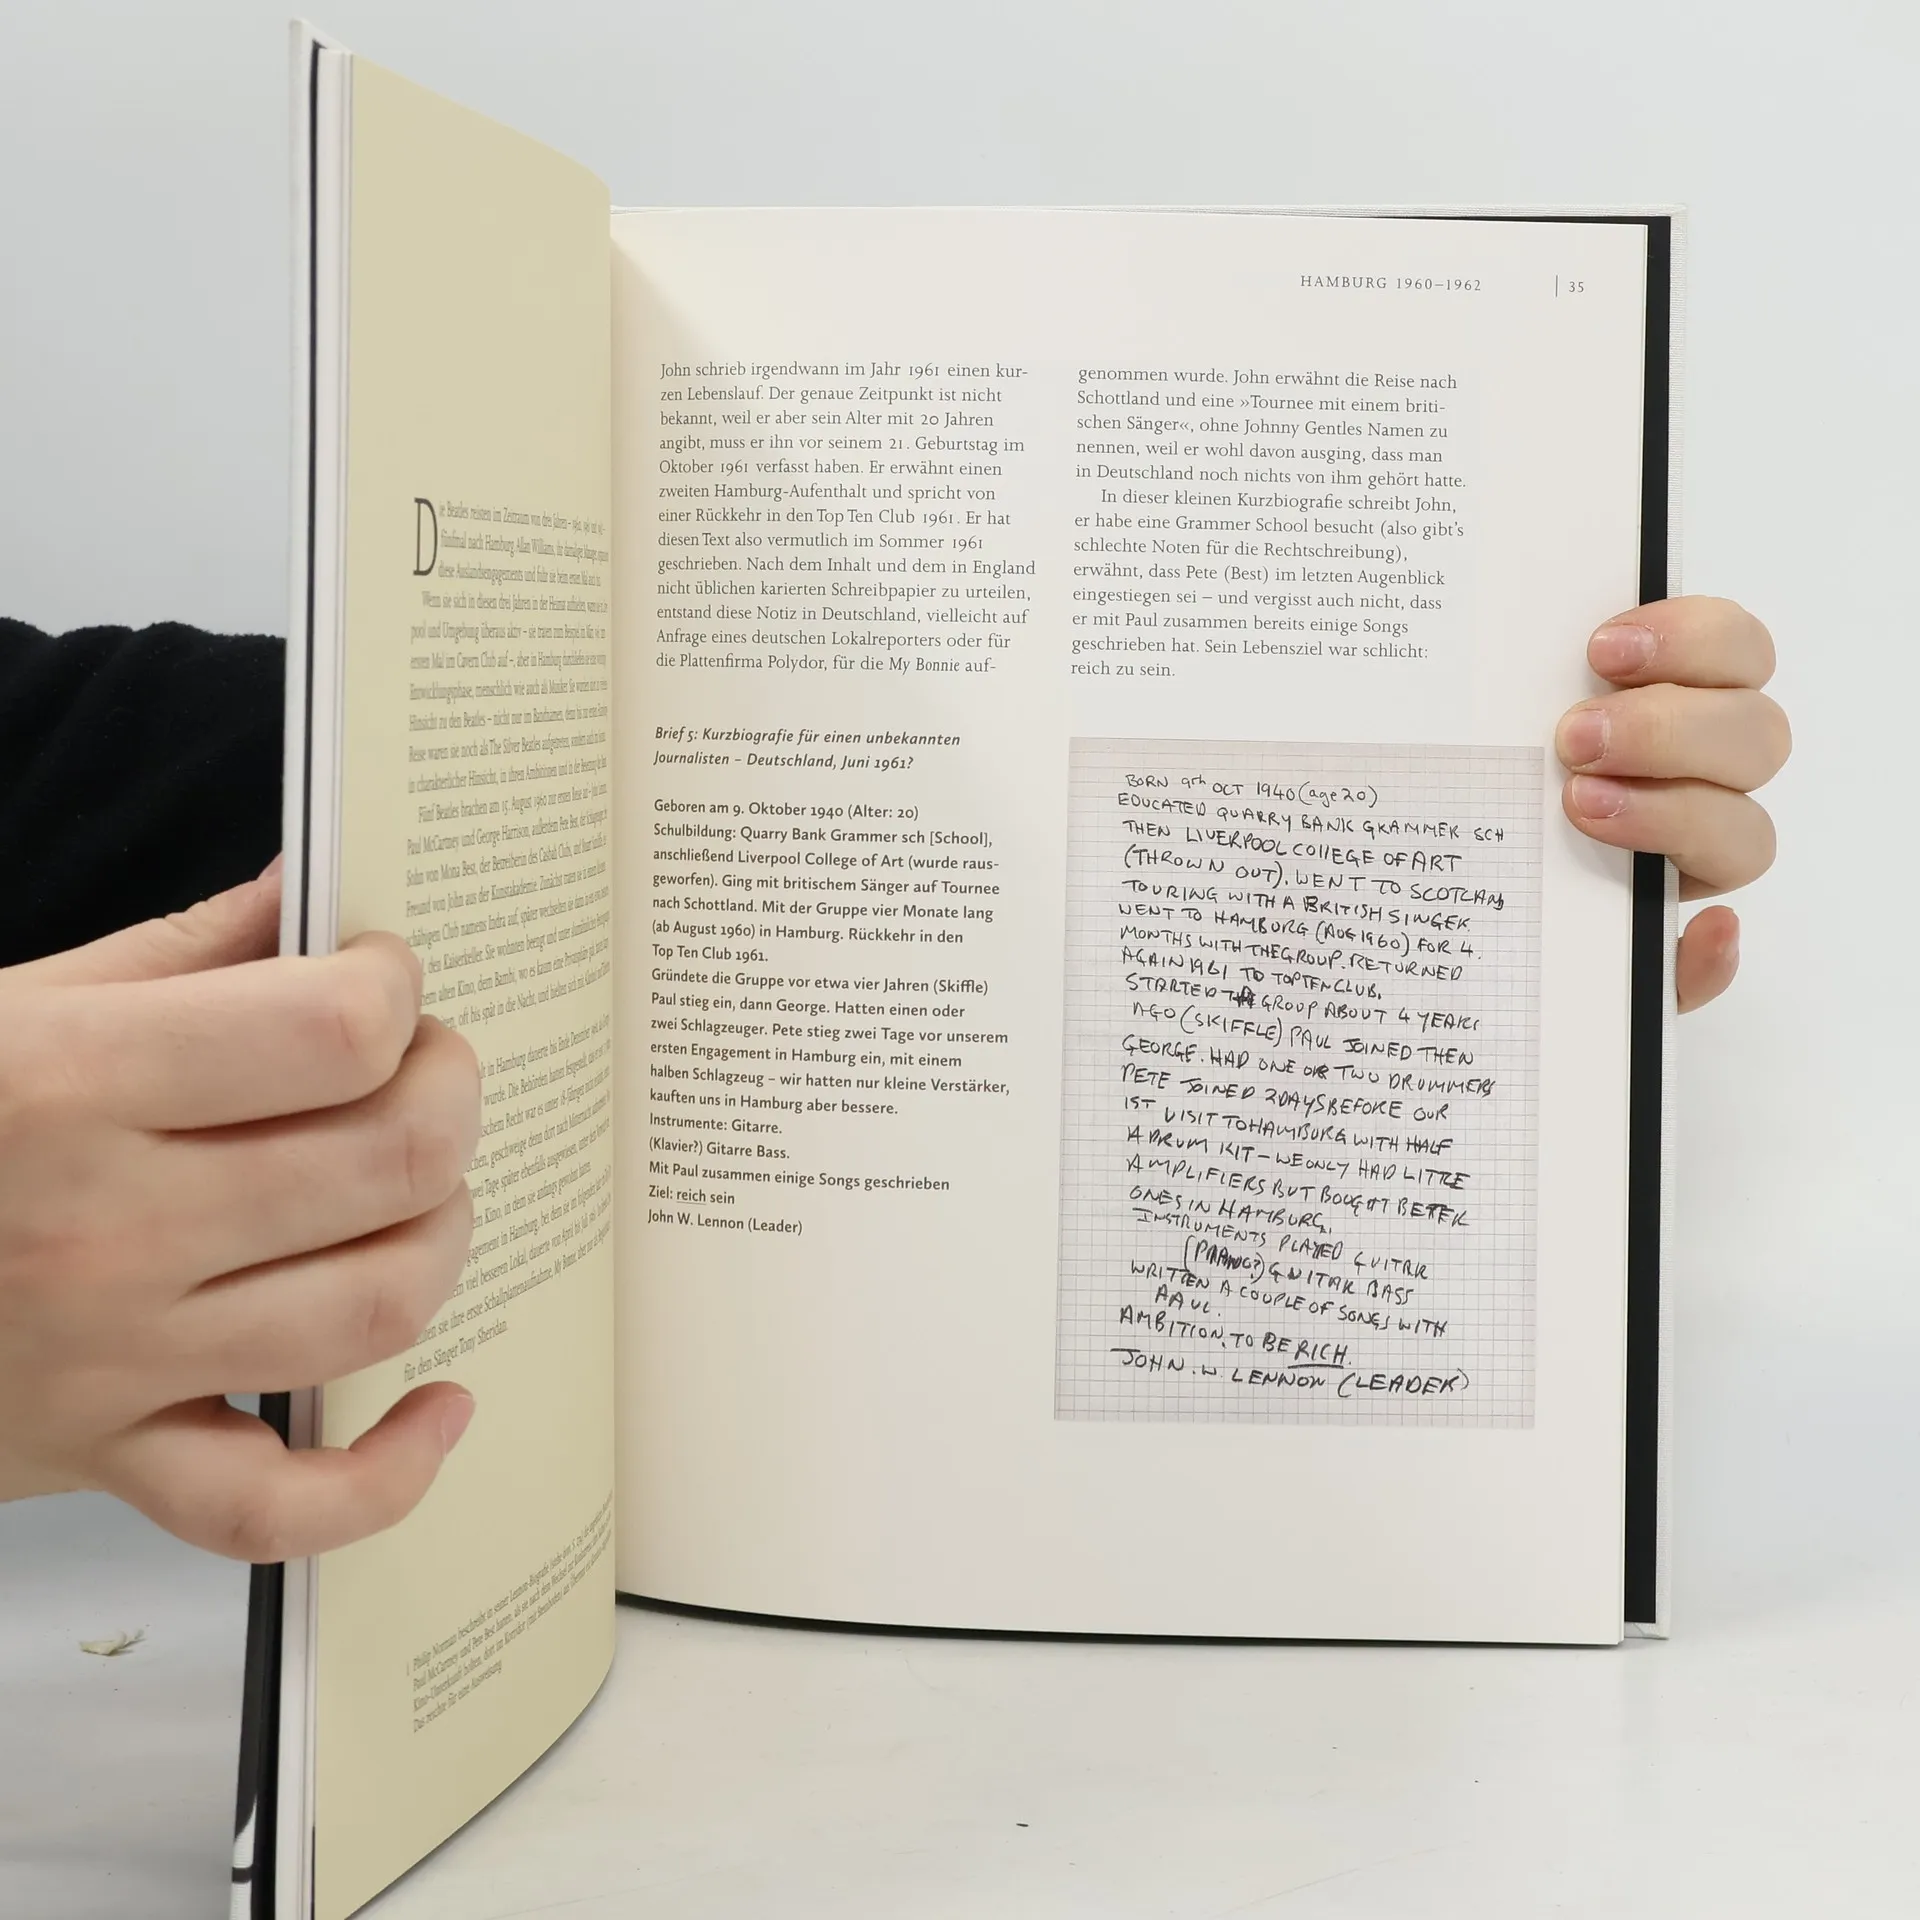 Die Beatles reisten im Zeitraum von drei Jahren –
fünfmal nach Hamburg. Allan Williams, ihr damaliger
diese Auslandsengagements und fuhr sie beim ersten Mal
Wenn sie sich in diesen drei Jahren in der Heimat aufhielten,
pool und Umgebung überaus aktiv – sie traten zum Beispiel im
ersten Mal im Cavern Club auf –, aber in Hamburg
Entwicklungsphase, menschlich wie auch als Musiker. Sie waren
Hinsicht zu den Beatles – nicht nur im Bandnamen, denn bis zur ersten
Reise waren sie noch als The Silver Beatles aufgetreten, sondern auch
in charakterlicher Hinsicht, in ihren Ambitionen und in der
Fünf Beatles brachen am 15. August 1960 zur ersten Reise
Paul McCartney und George Harrison, außerdem Pete Best, der
Sohn von Mona Best, der Betreiberin des Casbah Club, und
Freund von John aus der Kunstakademie. Zunächst traten sie in einem
schäbigen Club namens Indra auf, später wechselten sie dann
den Kaiserkeller. Sie wohnten beengt und unter
alten Kino, dem Bambi, wo es kaum eine Privatsphäre gab,
oft bis spät in die Nacht, und hielten sich mit
in Hamburg dauerte bis Ende Dezember
wurde. Die Behörden hatten festgestellt, dass
Recht war es unter 18-Jährigen nicht
geschweige denn dort nach Mitternacht
Tage später ebenfalls ausgewiesen, unter dem
Kino, in dem sie anfangs gewohnt hatten.
in Hamburg, bei dem sie im folgenden Jahr
viel besseren Lokal, dauerte von April bis Juli
sie ihre erste Schallplattenaufnahme, My Bonnie, aber nur als
für den Sänger Tony Sheridan.
1 Philip Norman beschreibt in seiner Lennon-Biografie
Paul McCartney und Pete Best hatten, als sie nach dem Wechsel
Kino-Unterkunft holten, dort im Korridor
Das reichte für eine Ausweisung.
HAMBURG 1960–1962 | 35
John schrieb irgendwann im Jahr 1961 einen kur-
zen Lebenslauf. Der genaue Zeitpunkt ist nicht
bekannt, weil er aber sein Alter mit 20 Jahren
angibt, muss er ihn vor seinem 21. Geburtstag im
Oktober 1961 verfasst haben. Er erwähnt einen
zweiten Hamburg-Aufenthalt und spricht von
einer Rückkehr in den Top Ten Club 1961. Er hat
diesen Text also vermutlich im Sommer 1961
geschrieben. Nach dem Inhalt und dem in England
nicht üblichen karierten Schreibpapier zu urteilen,
entstand diese Notiz in Deutschland, vielleicht auf
Anfrage eines deutschen Lokalreporters oder für
die Plattenfirma Polydor, für die My Bonnie auf-
genommen wurde. John erwähnt die Reise nach
Schottland und eine »Tournee mit einem briti-
schen Sänger«, ohne Johnny Gentles Namen zu
nennen, weil er wohl davon ausging, dass man
in Deutschland noch nichts von ihm gehört hatte.
In dieser kleinen Kurzbiografie schreibt John,
er habe eine Grammer School besucht (also gibt's
schlechte Noten für die Rechtschreibung),
erwähnt, dass Pete (Best) im letzten Augenblick
eingestiegen sei – und vergisst auch nicht, dass
er mit Paul zusammen bereits einige Songs
geschrieben hat. Sein Lebensziel war schlicht:
reich zu sein.
Brief 5: Kurzbiografie für einen unbekannten
Journalisten – Deutschland, Juni 1961?
Geboren am 9. Oktober 1940 (Alter: 20)
Schulbildung: Quarry Bank Grammer sch [School],
anschließend Liverpool College of Art (wurde raus-
geworfen). Ging mit britischem Sänger auf Tournee
nach Schottland. Mit der Gruppe vier Monate lang
(ab August 1960) in Hamburg. Rückkehr in den
Top Ten Club 1961.
Gründete die Gruppe vor etwa vier Jahren (Skiffle)
Paul stieg ein, dann George. Hatten einen oder
zwei Schlagzeuger. Pete stieg zwei Tage vor unserem
ersten Engagement in Hamburg ein, mit einem
halben Schlagzeug – wir hatten nur kleine Verstärker,
kauften uns in Hamburg aber bessere.
Instrumente: Gitarre.
(Klavier?) Gitarre Bass.
Mit Paul zusammen einige Songs geschrieben
Ziel: reich sein
John W. Lennon (Leader)
BORN 9th OCT 1940 (age 20)
EDUCATED QUARRY BANK GRAMMER SCH
THEN LIVERPOOL COllEGE OF ART
(THROWN OUT). WENT TO SCOTLAND
TOURING WITH A BRITISH SINGER.
WENT TO HAMBURG (AUG 1960) FOR 4.
MONTHS WITH THE GROUP. RETURNED
AGAIN 1961 TO TOP TEN CLUB.
STARTED THE GROUP ABOUT 4 YEARS
AGO (SKIFFLE) PAUL JOINED THEN
GEORGE. HAD ONE OR TWO DRUMMERS
PETE JOINED 2 DAYS BEFORE OUR
1ST VISIT TO HAMBURG WITH HALF
A DRUM KIT – WE ONLY HAD LITTLE
AMPLIFIERS BUT BOUGHT BETTER
ONES IN HAMBURG.
INSTRUMENTS PLAYED GUITAR
(PIANO?) GUITAR BASS
WRITTEN A COUPLE OF SONGS WITH
PAUL.
AMBITION. TO BE RICH.
JOHN. W. LENNON (LEADER)